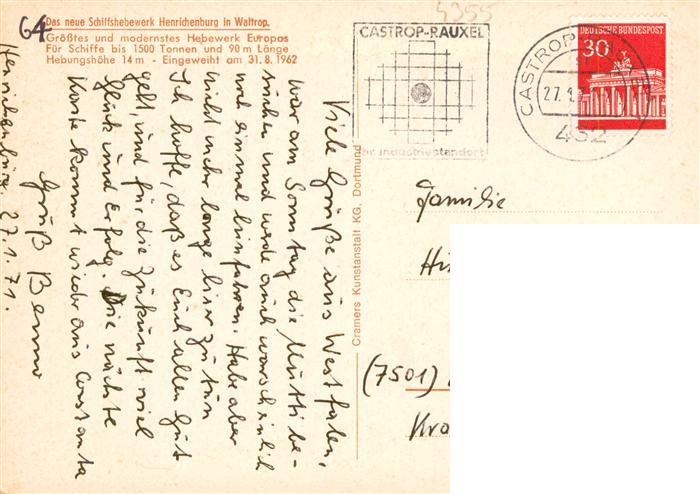 64
Das neue Schiffshebewerk Henrichenburg in Waltrop.
Größtes und modernstes Hebewerk Europas
Für Schiffe bis 1500 Tonnen und 90 m Länge
Hebungshöhe 14 m - Eingeweiht am 31. 8. 1962
Henrichenburg. 27.1.71.
Viele Grüße aus Westfalen,
war am Sonntag die Mutti be-
suchen und werde auch warscheinlich
noch einmal hinfahren. Habe aber
nicht mehr lange hier zu tun
Ich hoffe, daß es Euch allen gut
geht, und für die Zukunft viel
Glück und Erfolg. Die nächste
Karte kommt wieder aus Constanta
Gruß Benno
Cramers Kunstanstalt KG, Dortmund
4355
CASTROP-RAUXEL
Ihr Industriestandort
CASTROP
27.1.7
462
DEUTSCHE BUNDESPOST
30
Familie
Hi
(7501)
Kro